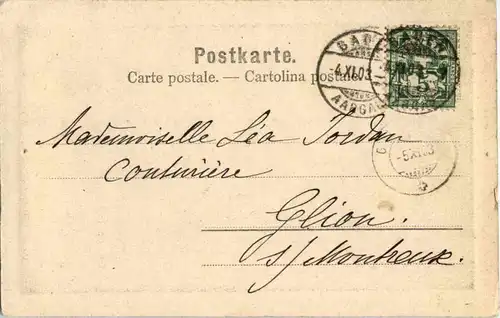 Postkarte.
Carte postale. — Cartolina postale
BADEN
-4.XI.03
AARGAU
5
Mademoiselle Léa Jordan
Couturière
-5.XI.03
Glion.
s/Montreux.